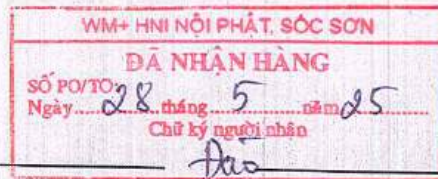 WM+ HNI NỘI PHẬT, SÓC SƠN
ĐÃ NHẬN HÀNG
SỐ PO/TO:
Ngày....28...tháng....5......năm.25....
Chữ ký người nhân
Đào